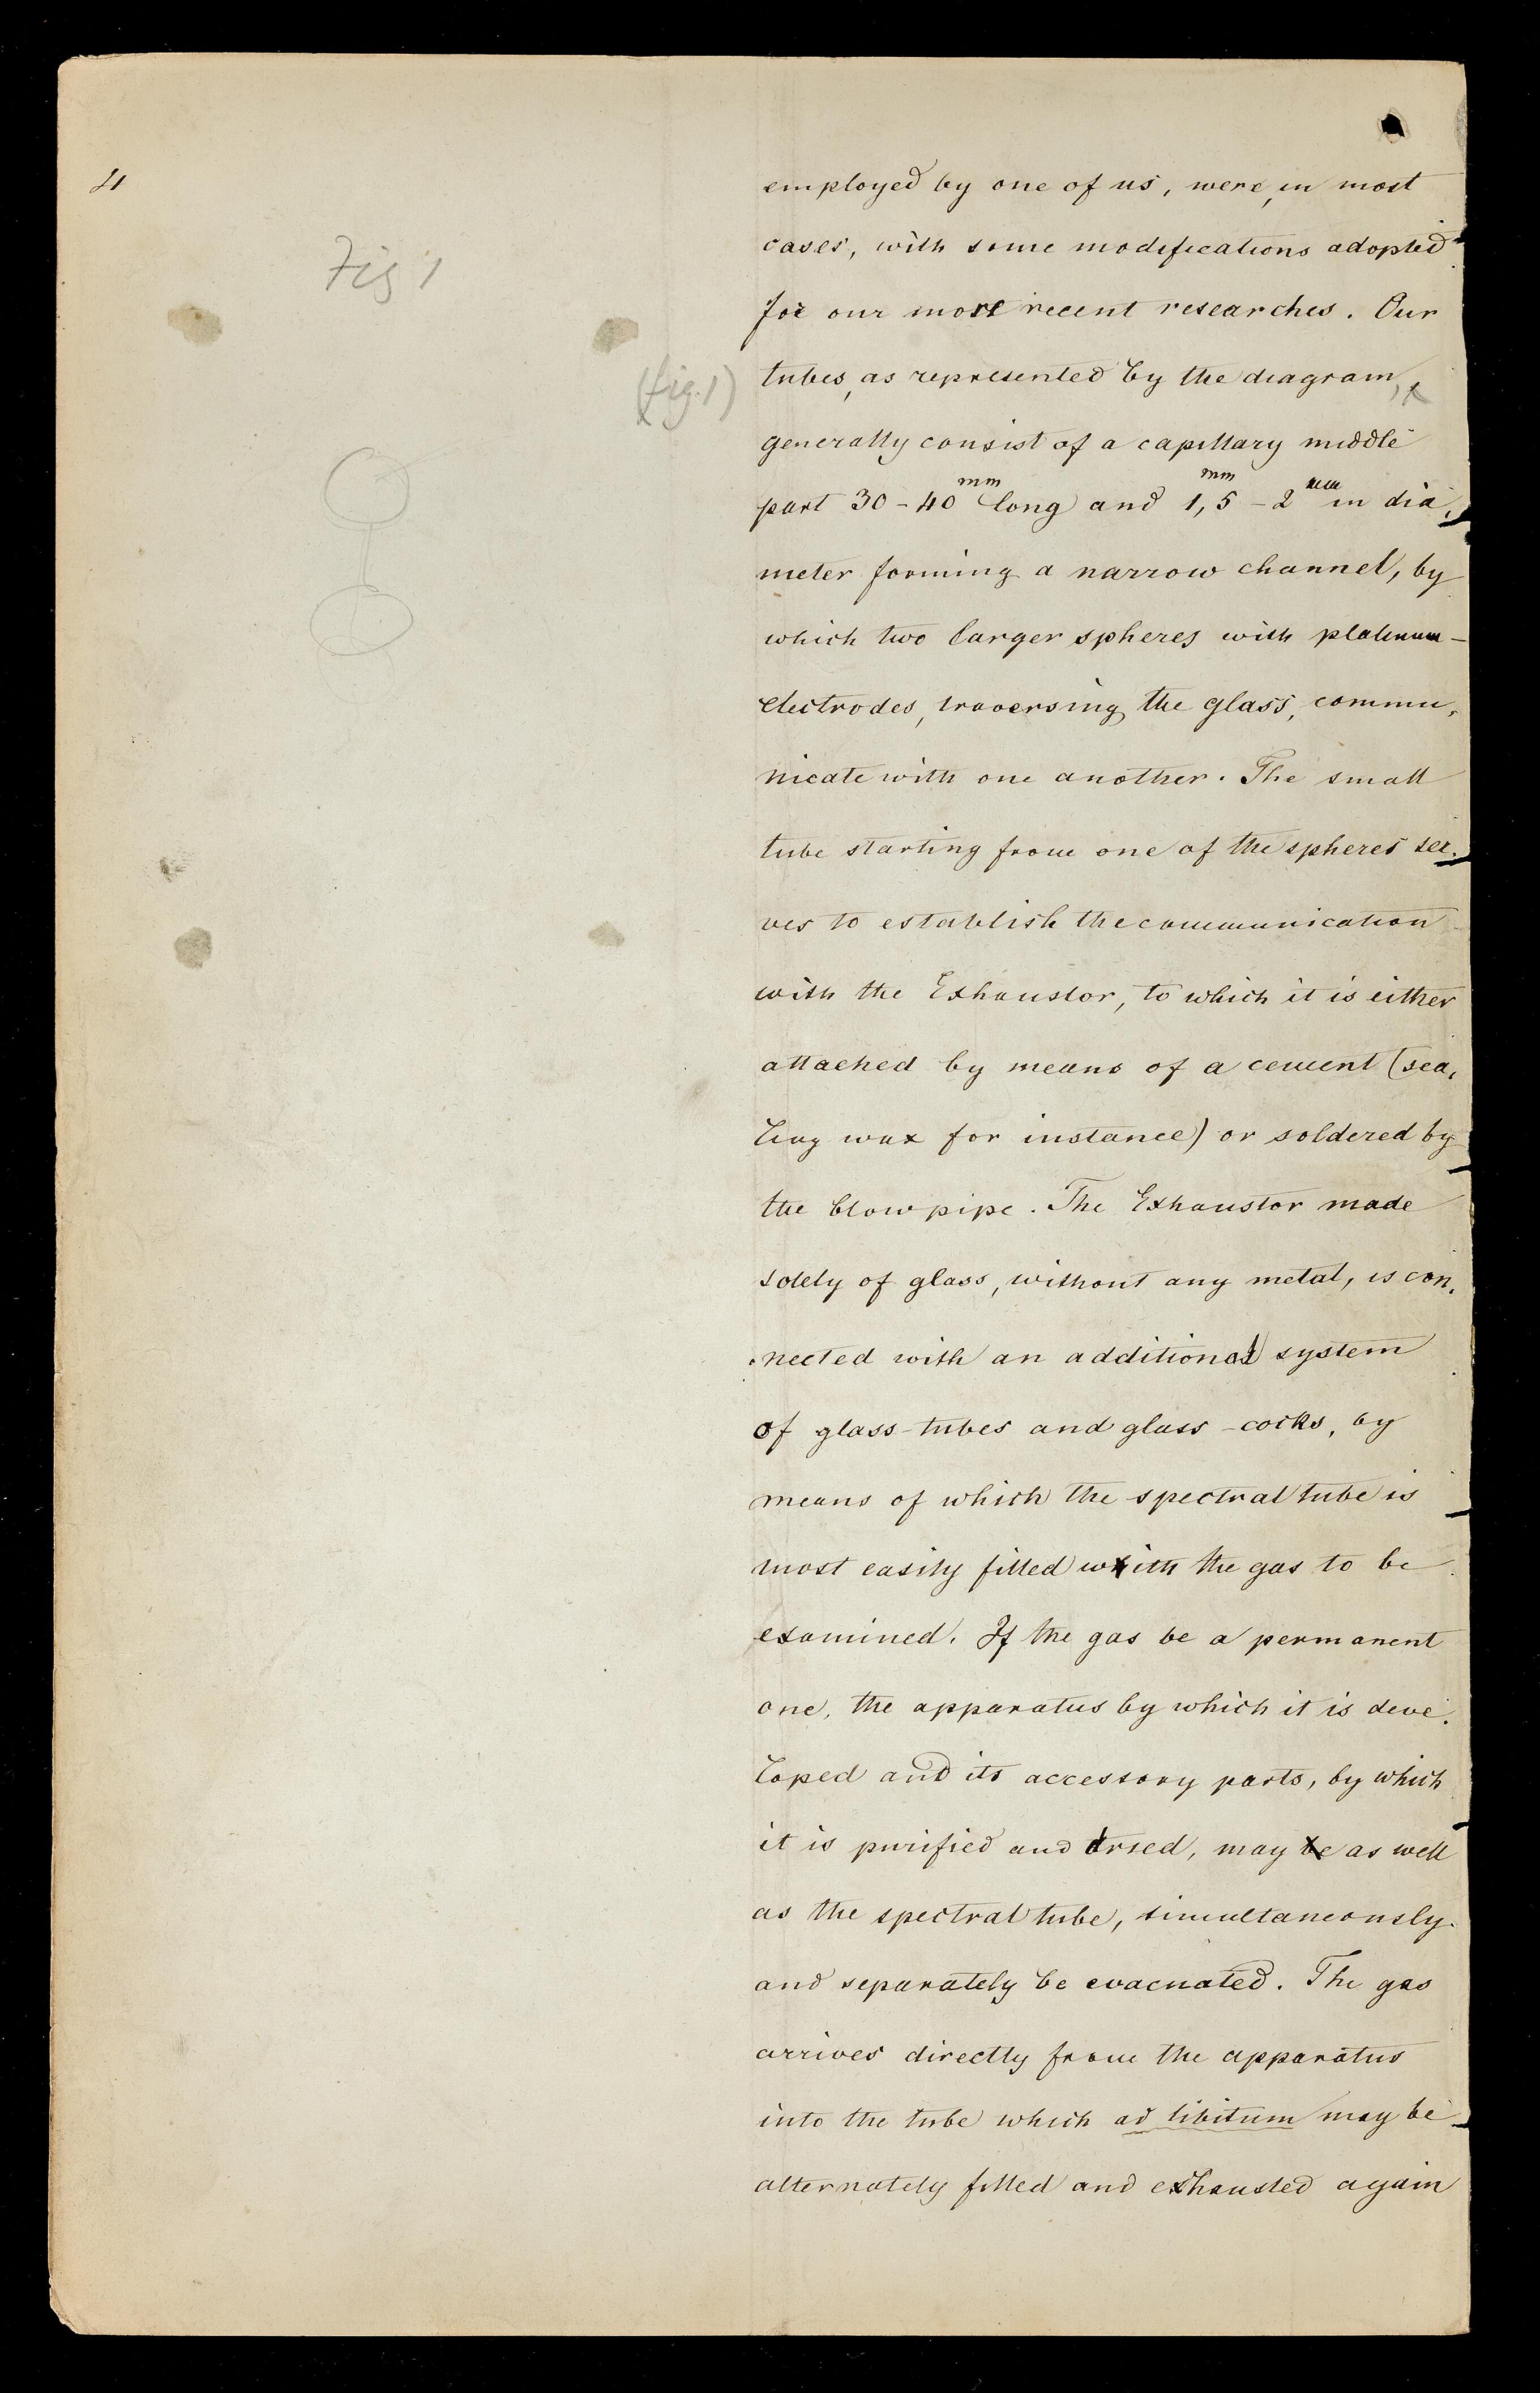 4
Fig 1
(fig. 1)
employed by one of us, were, in most
cases, with some modifications adopted
for our more recent researches. Our
tubes, as represented by the diagram,
generally consist of a capillary middle
part 30-40 mm long and 1,5 - 2 mm in dia,
meter forming a narrow channel, by
which two larger spheres with platinum-
electrodes, traversing the glass, commu,
nicate with one another. The small
tube starting from one of the spheres ser,
ves to establish the communication
with the Exhaustor, to which it is either
attached by means of a cement (sea,
ling wax for instance) or soldered by
the blowpipe. The Exhaustor made
solely of glass, without any metal, is con,
nected with an additional system
of glass-tubes and glass-cocks, by
means of which the spectral tube is
most easily filled with the gas to be
examined. If the gas be a permanent
one, the apparatus by which it is deve,
loped and its accessory parts, by which
it is purified and dried, may be as well
as the spectral tube, simultaneously
and separately be evacuated. The gas
arrives directly from the apparatus
into the tube which ad libitum may be
alternately filled and exhausted again